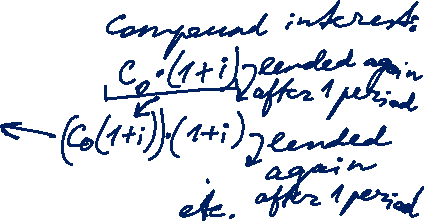 Compound interest:
C₀·(1+i) lended again
after 1 period
(C₀(1+i))·(1+i) lended
again
etc. after 1 period